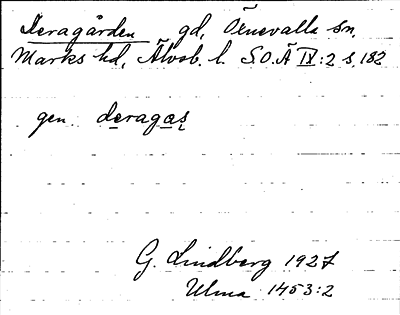 Deragården gd, Örnevalla sn,
Marks hd, Älvsb. l. S.O.Ä IX:2 s. 182
gen. deragas
G. Lindberg 1927
Ulma 1453:2